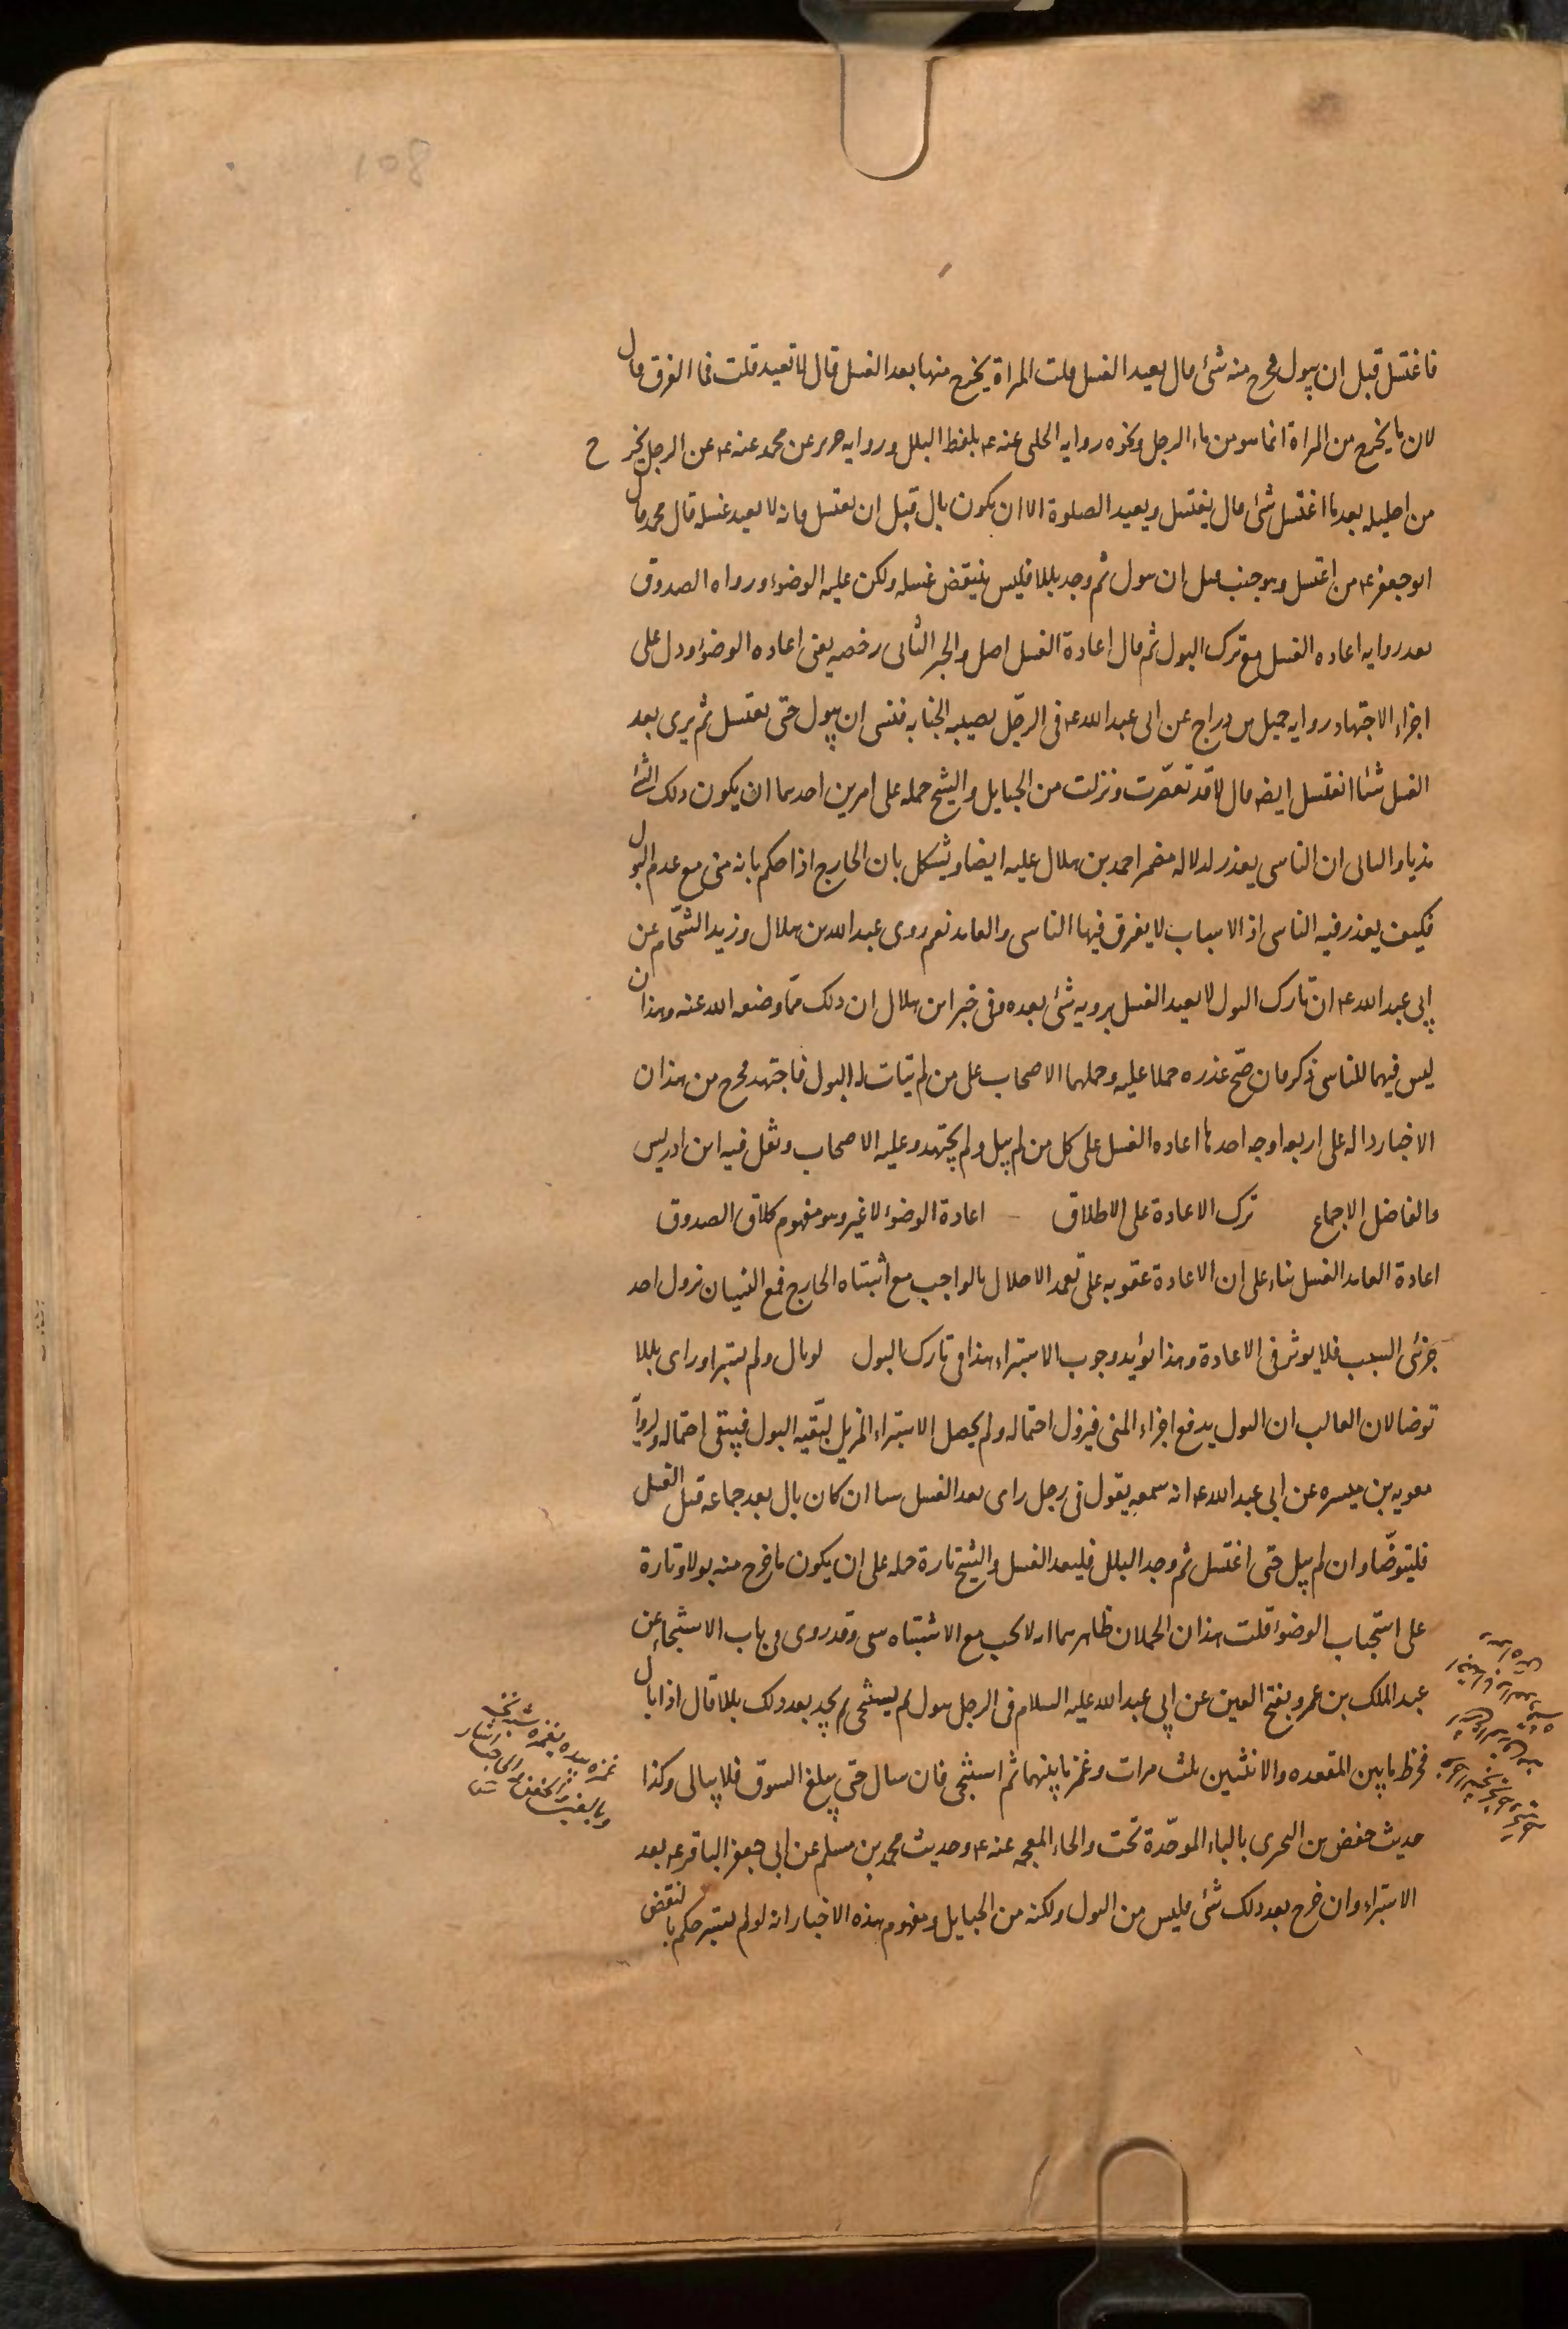 فاغتسل قبل ان يبول فخرج منه شئ قال يعيد الغسل قلت المراة يخرج منها بعد الغسل قال لا تعيد قلت فما الفرق قال
لان ما يخرج من المراة انما هو من ماء الرجل ونحوه روايه الحلبى عنه ع بلفظ البلل وروايه حريز عن محمد عنه ع عن الرجل يخرج
من احليله بعد ما اغتسل شئ قال يغتسل ويعيد الصلوة الا ان يكون بال قبل ان يغتسل فانه لا يعيد غسله قال محمد قال
ابو جعفر ع من اغتسل وهو جنب قبل ان يبول ثم وجد بللا فليس ينقض غسله ولكن عليه الوضوء ورواه الصدوق
بعد روايه اعاده الغسل مع ترك البول ثم قال اعادة الغسل اصل والخبر الثانى رخصه يعنى اعاده الوضوء ودل على
اجزاء الاجتهاد روايه جميل بن دراج عن ابى عبد الله ع فى الرجّل يصيبه الجنابه فنسى ان يبول حتى يغتسل ثم يرى بعد
الغسل شئا ايغتسل ايضا قال لا قد تعصّرت ونزلت من الحبايل والشيخ حمله على امرين احدهما ان يكون ذلك الشئ
مذيا والثانى ان الناسى يعذر لدلاله مضمر احمد بن هلال عليه ايضا ويشكل بان الخارج اذا حكم بانه منى مع عدم البول
فكيف يعذر فيه الناسى اذ الاسباب لا يفرق فيها الناسى والعامد نعم روى عبد الله بن هلال وزيد الشحّام عن
ابى عبد الله ع ان تارك البول لا يعيد الغسل برويه شئ بعده وفى خبر ابن هلال ان ذلك ممّا وضعه الله عنه وهذان
ليس فيهما للناسى ذكر فان صحّ عذره حملا عليه وحملهما الاصحاب على من لم يتات له البول فاجتهد فخرج من هذان
الاخبار داله على اربعه اوجه احدها اعاده الغسل على كل من لم يبل ولم يجتهد وعليه الاصحاب ونقل فيه ابن ادريس
والفاضل الاجماع ترك الاعادة على الاطلاق اعادة الوضوء لا غير وهو مفهوم كلام الصدوق
اعادة العامد الغسل بناء على ان الاعادة عقوبه على تعمد الاخلال بالواجب مع اشتباه الخارج فمع النسيان نزول احد
جزئى السبب فلا يوثر فى الاعادة وهذا يؤيد وجوب الاستبراء هذا فى تارك البول لو بال ولم يستبر اوراى بللا
توضا لان الغالب ان البول يدفع اجزاء المنى فيزول احتماله ولم يحصل الاستبراء المزيل لبقيه البول فيبقى احتماله ولروايه
معويه بن ميسره عن ابى عبد الله ع انه سمعه يقول فى رجل راى بعد الغسل شيا ان كان بال بعد جماعه قبل الغسل
فليتوضّا وان لم يبل حتى اغتسل ثم وجد البلل فليعد الغسل والشيخ تارة حمله على ان يكون ما خرج منه بولا وتارة
على استحباب الوضوء قلت هذان الحملان ظاهرهما انه لا يجب مع الاشتباه شى وقد روى فى باب الاستنجاء عن
عبد الملك بن عمرو بفتح العين عن ابى عبد الله عليه السلام فى الرجل يبول ثم يستنجى ثم يجد بعد ذلك بللا قال اذا بال
فخرط ما بين المقعده والانثيين ثلث مرات وغمز ما بينهما ثم استنجى فان سال حتى يبلغ السوق فلا يبالى وكذا
حديث حفص بن البخرى بالباء الموحّدة تحت والخاء المعجمه عنه ع وحديث محمد بن مسلم عن ابى جعفر الباقر ع بعد
الاستبراء وان خرج بعد ذلك شئ فليس من البول ولكنه من الحبايل ومفهوم هذه الاخبار انه لو لم يستبر حكم بالنقض
غمزه بيده يغمزه